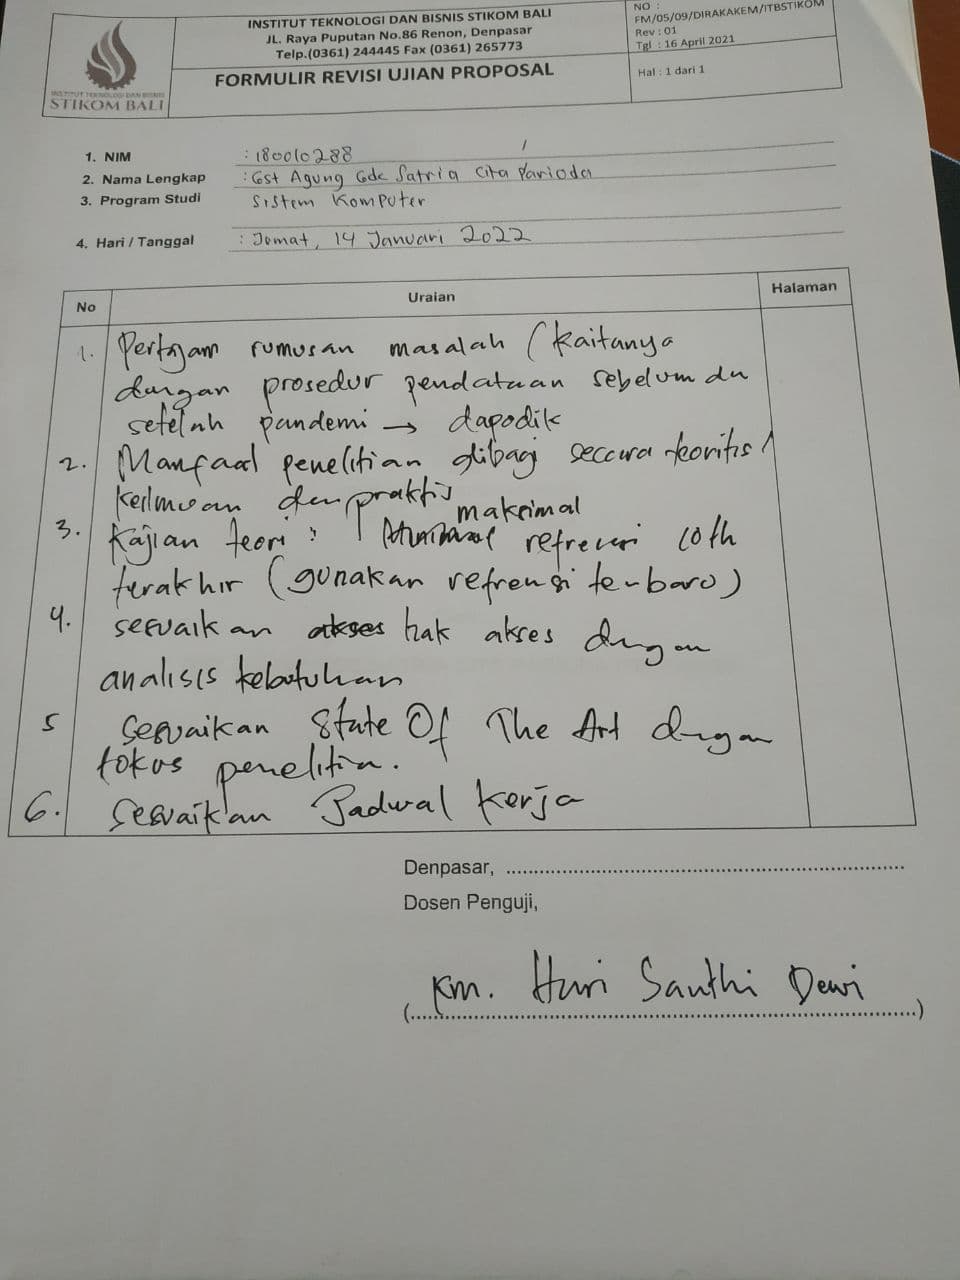 INSTITUT TEKNOLOGI DAN BISNIS
STIKOM BALI
INSTITUT TEKNOLOGI DAN BISNIS STIKOM BALI
JL. Raya Puputan No.86 Renon, Denpasar
Telp.(0361) 244445 Fax (0361) 265773
FORMULIR REVISI UJIAN PROPOSAL
NO :
FM/05/09/DIRAKAKEM/ITBSTIKOM
Rev : 01
Tgl : 16 April 2021
Hal : 1 dari 1
1. NIM : 180010288
2. Nama Lengkap : Gst Agung Gde Satria Cita
3. Program Studi Sistem Komputer
4. Hari / Tanggal : Jumat, 14 Januari 2022
No Uraian Halaman
1. Pertajam rumusan masalah (kaitanya
dengan prosedur pendataan sebelum dn
setelah pandemi → dapodik
2. Manfaat penelitian dibagi secara teoritis /
keilmuan dan praktis
maksimal
3. Kajian teori : refrensi 10 th
terakhir (gunakan refrensi terbaru)
4. sesuaikan akses hak akses dengan
analisis kebutuhan
5 Sesuaikan State Of The Art dengan
fokus penelitian.
6. Sesuaikan Jadwal Kerja
Denpasar, ..........
Dosen Penguji,
Km. Huri Santhi Dewi
(..........)